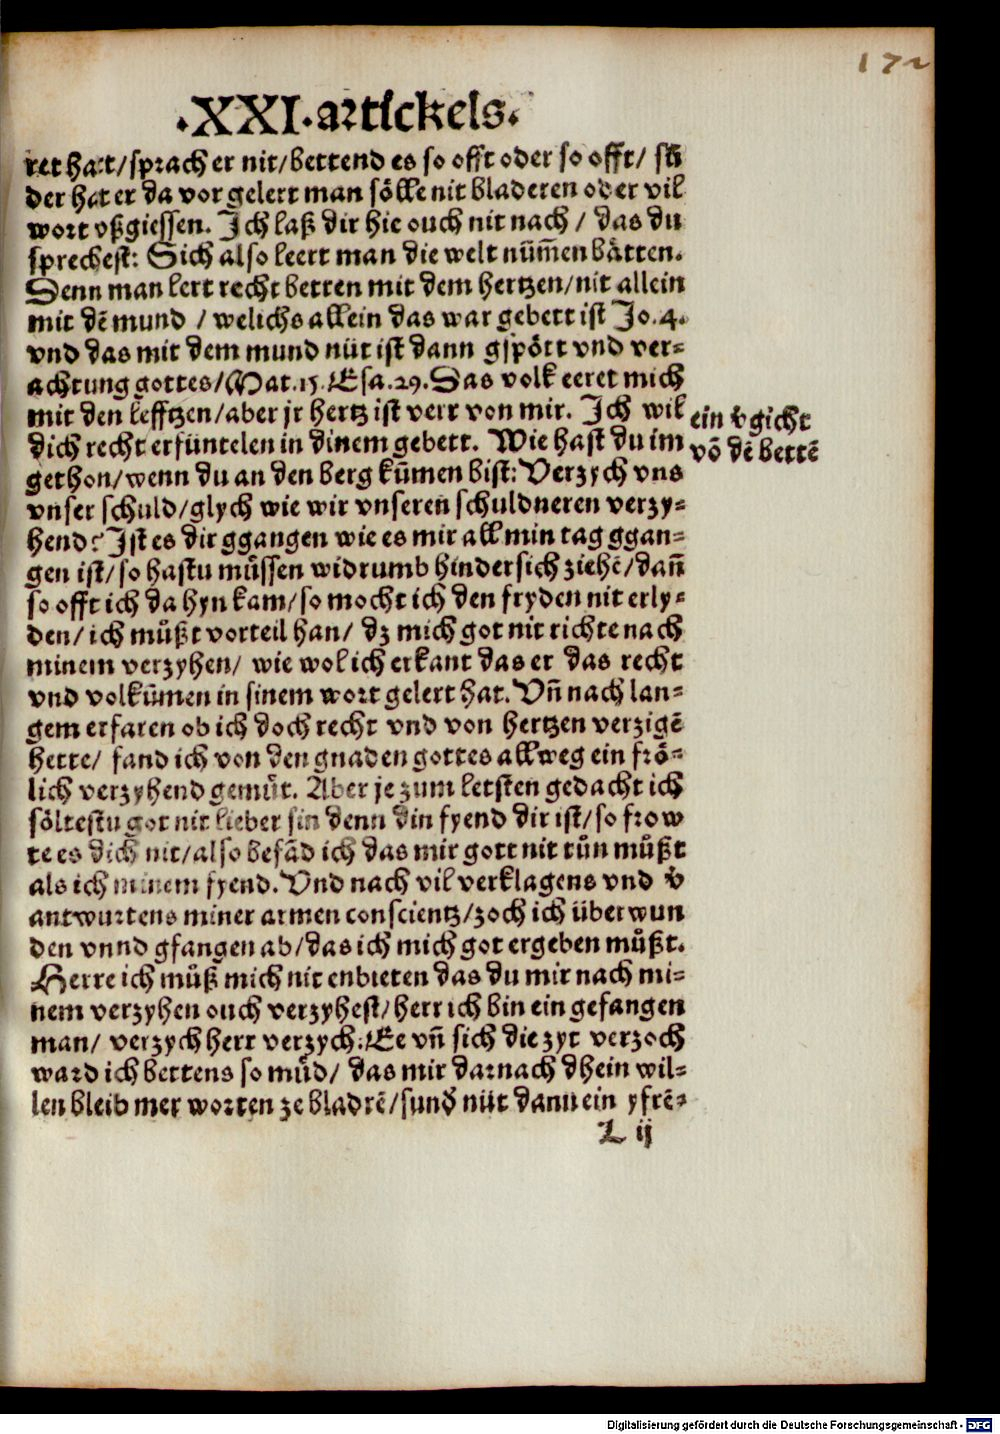 172
·XXI·artickels·
ret hatt/sprach er nit/bettend es so offt oder so offt/ sū
der hat er da vor gelert man sölle nit bladeren oder vil
wort vßgiessen. Ich laß dir hie ouch nit nach / das du
sprechest: Sich also leert man die welt nüm̄en bätten.
Denn man lert recht betten mit dem hertzen/nit allein
mit dē mund / welichs allein das war gebett ist Jo.4.
vnd das mit dem mund nüt ist dann gspött vnd ver⸗
achtung gottes/Mat.15. Esa.29. Das volk eeret mich
mit den lefftzen/aber jr hertz ist verr von mir. Ich wil
dich recht erfüntelen in dinem gebett. Wie hast du im
gethon/wenn du an den berg kūmen bist: Verzych vns
vnser schuld/glych wie wir vnseren schuldneren verzy⸗
hend? Ist es dir ggangen wie es mir all min tag ggan⸗
gen ist/so hastu müssen widrumb hindersich ziehē/dañ
so offt ich da hyn kam/so mocht ich den fryden nit erly⸗
den/ich müßt vorteil han/ dz mich got nit richte nach
minem verzyhen/ wie wol ich erkant das er das recht
vnd volkūmen in sinem wort gelert hat. Vñ nach lan⸗
gem erfaren ob ich doch recht vnd von hertzen verzigē
hette/ fand ich von den gnaden gottes allweg ein frö⸗
lich verzyhend gemüt. Aber je zum letsten gedacht ich
söltestu got nit lieber sin denn din fyend dir ist/so frow
te es dich nit/also befād ich das mir gott nit tůn müßt
als ich minem fyend. Vnd nach vil verklagens vnd v̄
antwurtens miner armen conscientz/zoch ich überwun
den vnnd gfangen ab/das ich mich got ergeben müßt.
Herre ich můß mich nit enbieten das du mir nach mi⸗
nem verzyhen ouch verzyhest/herr ich bin ein gefangen
man/ verzych herr verzych. Ee vñ sich die zyt verzoch
ward ich bettens so müd/ das mir darnach dhein wil⸗
len bleib mer worten ze bladrē/sund̄ nüt dann ein yfrē⸗
L ij
ein v̄gicht
vō dē bettē
Digitalisierung gefördert durch die Deutsche Forschungsgemeinschaft - DFG